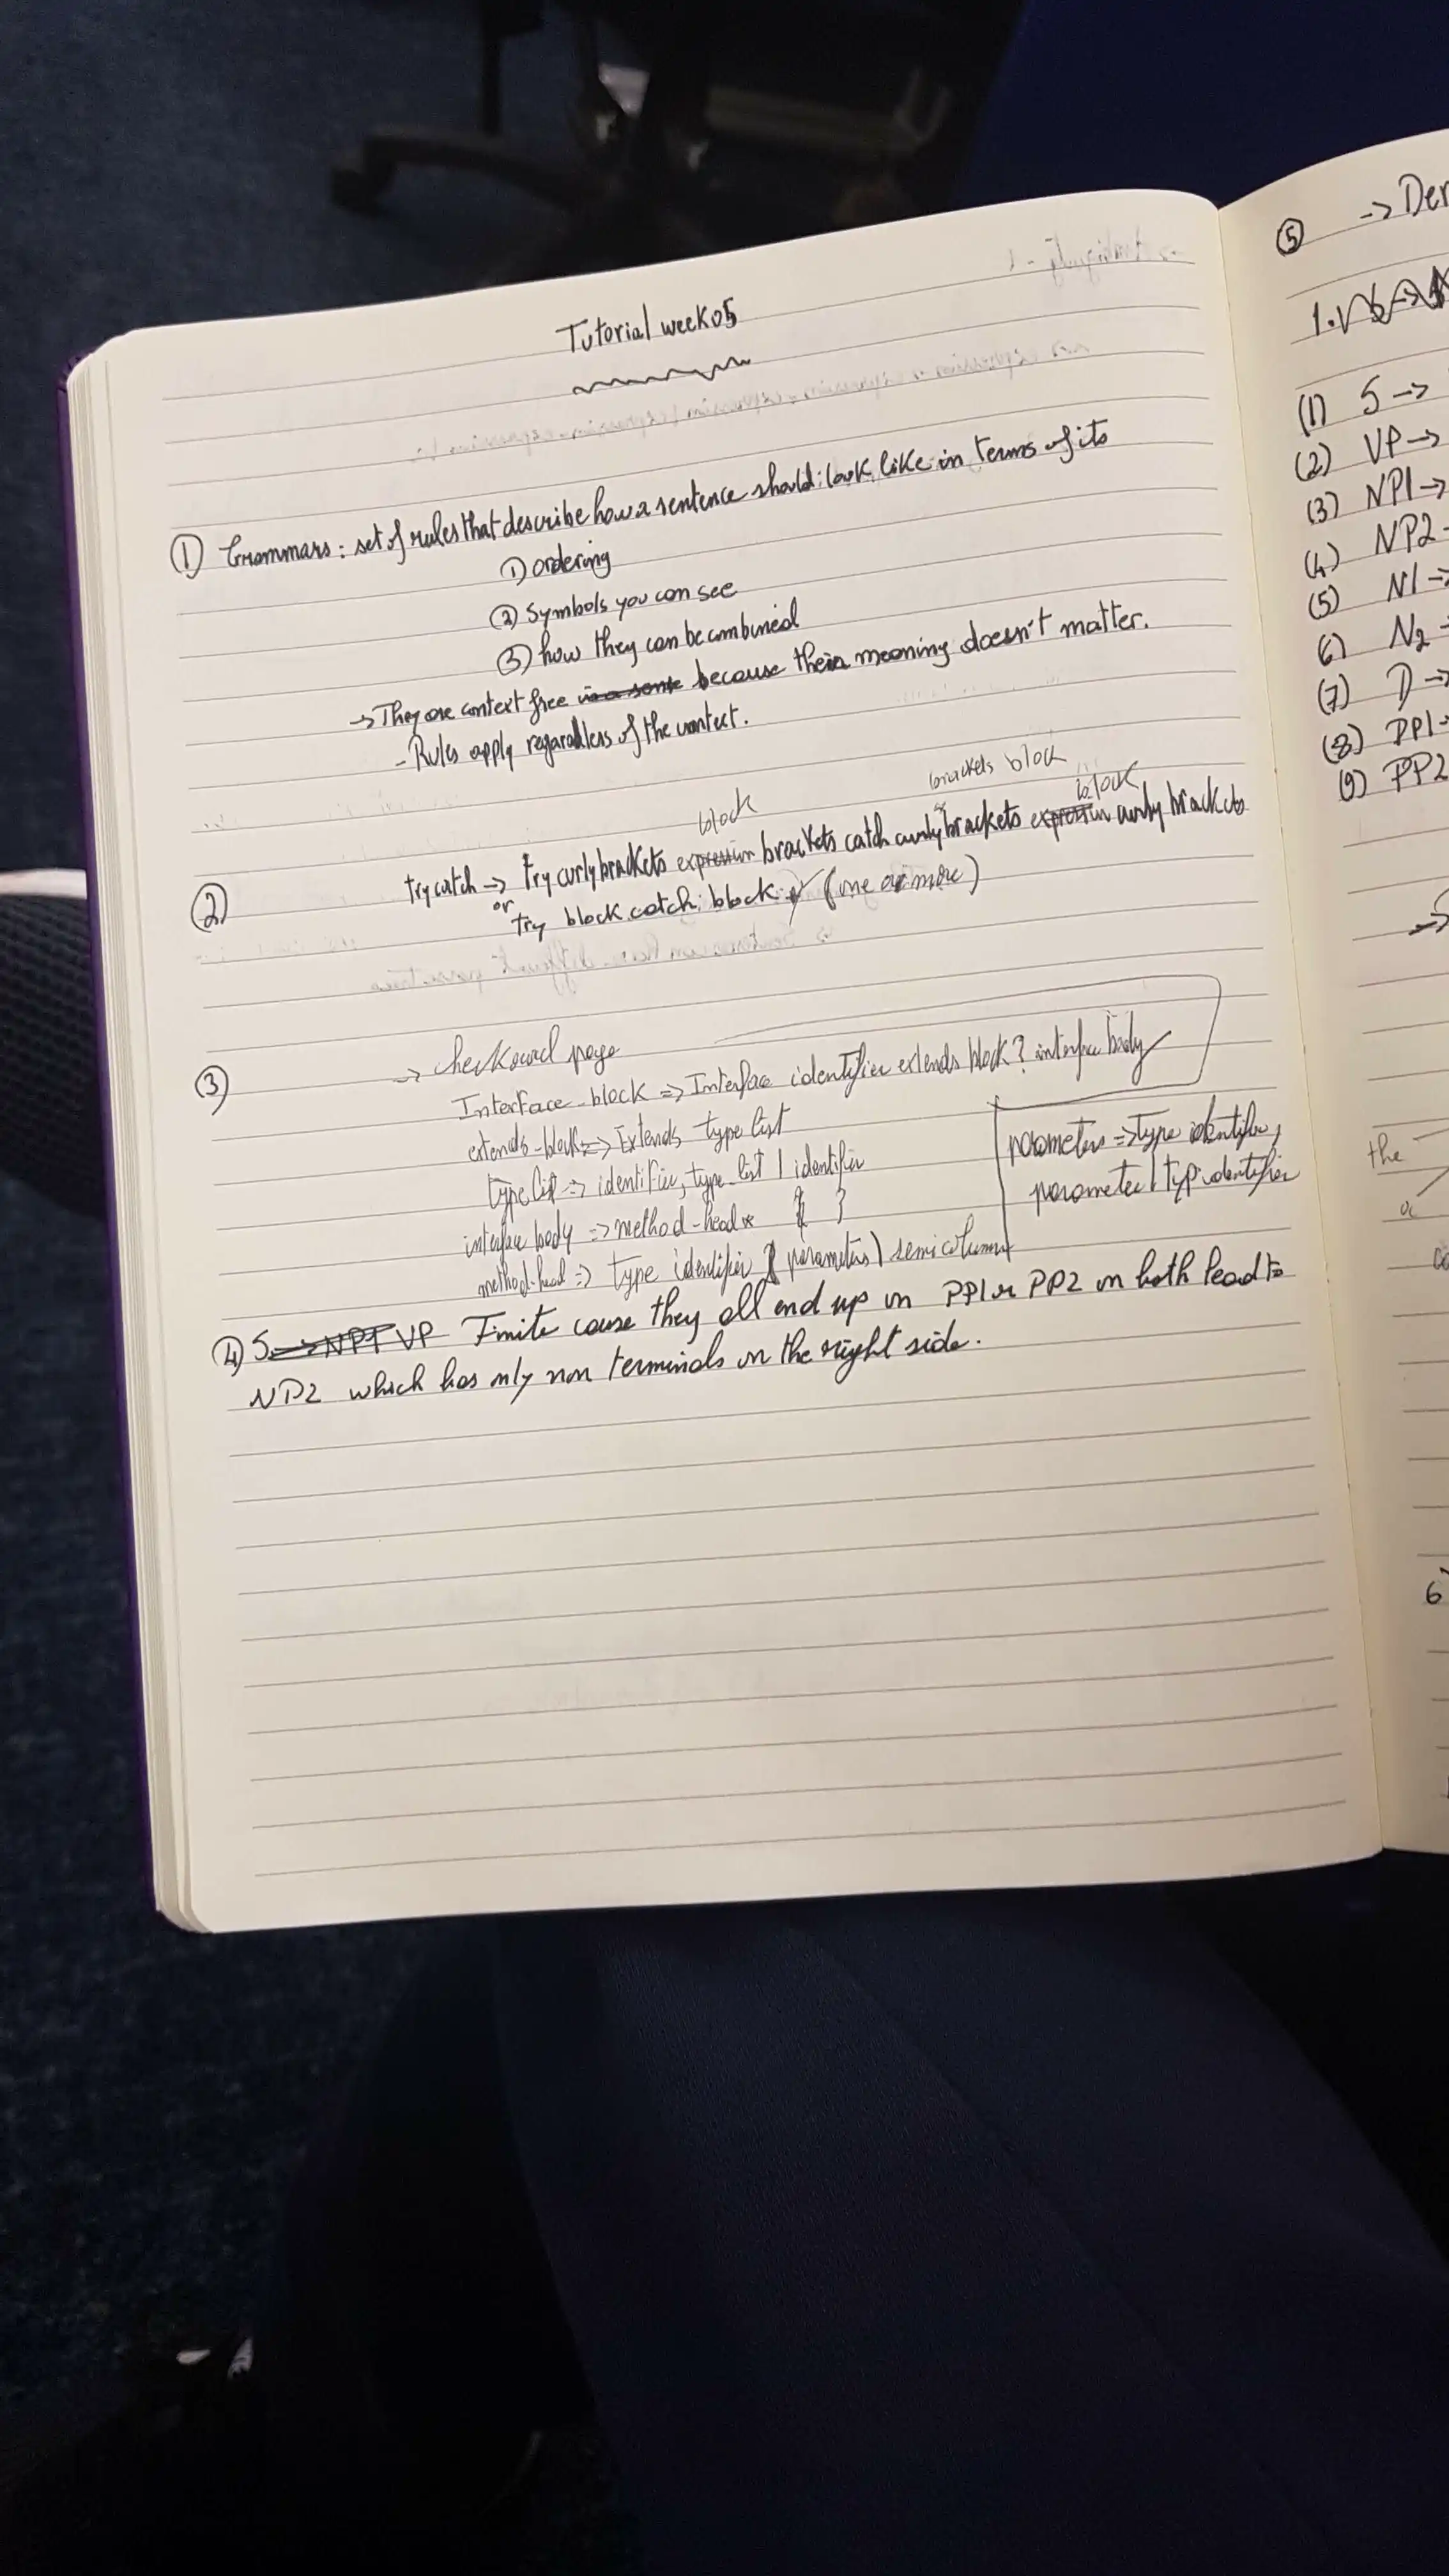 Tutorial week05
① Grammars: set of rules that describe how a sentence should look like in terms of its
① ordering
② Symbols you can see
③ how they can be combined
→ They are context free because their meaning doesn't matter.
- Rules apply regardless of the context.
block brackets block block
② try catch → try curly brackets expression brackets catch curly brackets expression curly brackets
or try block catch block (one or more)
③ → check page
Interface-block => Interface identifier extends block? interface body
extends-block => Extends type list
type list => identifier, type-list | identifier
interface body => method-head* { }
method-head => type identifier ( parameters) semicolumn
parameters => type identifier,
parameter | typ identifier
④ S → NP1 VP Finite cause they all end up in PP1 or PP2 on both lead to
NP2 which has only non terminals on the right side.
⑤ → Der
(1) S →
(2) VP →
(3) NP1 →
(4) NP2
(5) N1 →
(6) N2
(7) D →
(8) PP1
(9) PP2
the
6